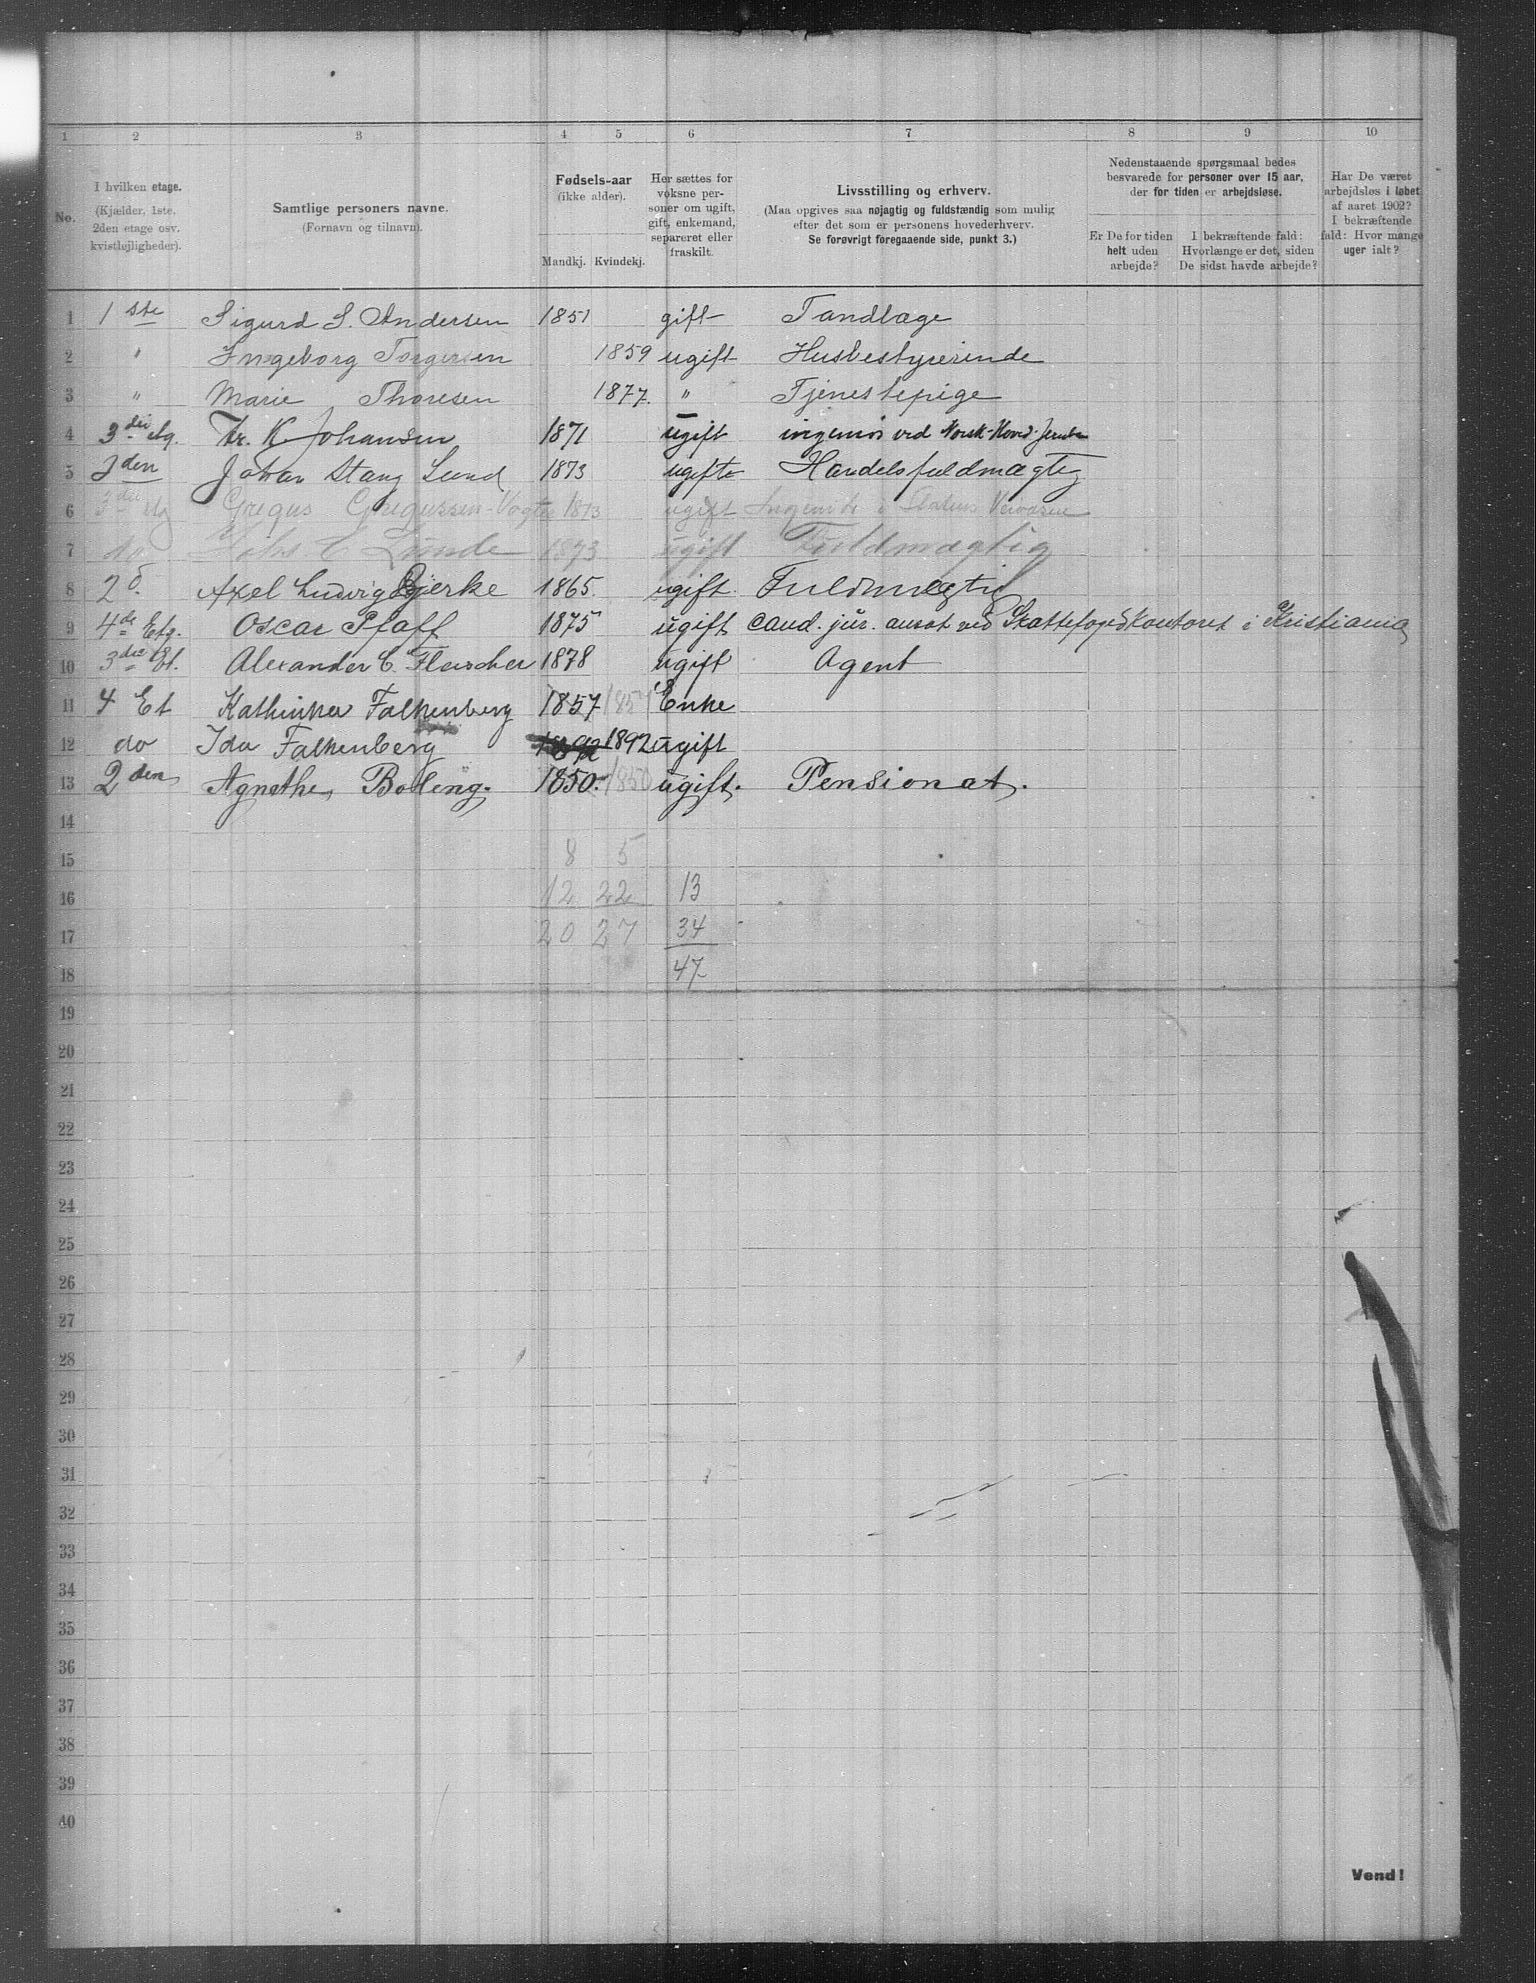 1 2 3 4 5 6 7 8 9 10
No.
I hvilken etage.
(Kjælder, 1ste. 2den etage osv. kvistlejligheder).
Samtlige personers navne.
(Fornavn og tilnavn).
Fødsels-aar
(ikke alder).
Mandkj. Kvindekj.
Her sættes for voksne personer om ugift, gift, enkemand, separeret eller fraskilt.
Livsstilling og erhverv.
(Maa opgives saa nøjagtig og fuldstændig som mulig efter det som er personens hovederhverv.
Se forøvrigt foregaaende side, punkt 3.)
Nedenstaaende spørgsmaal bedes besvarede for personer over 15 aar, der for tiden er arbejdsløse.
Er De for tiden helt uden arbejde?
I bekræftende fald: Hvorlænge er det, siden De sidst havde arbejde?
Har De været arbejdsløs i løbet af aaret 1902? I bekræftende fald: Hvor mange uger ialt?
1 1 ste Sigurd S. Andersen 1851 gift Tandlæge
2 " Ingeborg Torgersen 1859 ugift Husbestyrerinde
3 " Marie Thoresen 1877. " Tjenestepige
4 3die Etg. Thr. K. Johansen 1871 ugift ingeniør ved Norsk Hoved-Jernb
5 2den Johan Stang Lund 1873 ugift Handelsfuldmægtig
6 3die Etg Gregus Gregussen-Vogt 1873 ugift Ingeniør i Statens
7 do Johs. E Lunde 1873 ugift Fuldmægtig
8 2d. Axel Ludvig Bjerke 1865. ugift. Fuldmægtig
9 4de Etg. Oscar Pfaff 1875 ugift cand. jur. ansat ved Skattefogedkontoret i Kristiania
10 3die Et. Alexander C. Fleischer 1878 ugift Agent
11 4 Et Kathinka Falkenberg 1857 1857 Enke
12 do Ida Falkenberg 1892 1892 ugift
13 2den Agnethe Boleng. 1850. 1850 ugift. Pensionat.
14
15 8 5
16 12 22 13
17 20 27 34
18 47
19
20
21
22
23
24
25
26
27
28
29
30
31
32
33
34
35
36
37
38
39
40
Vend!